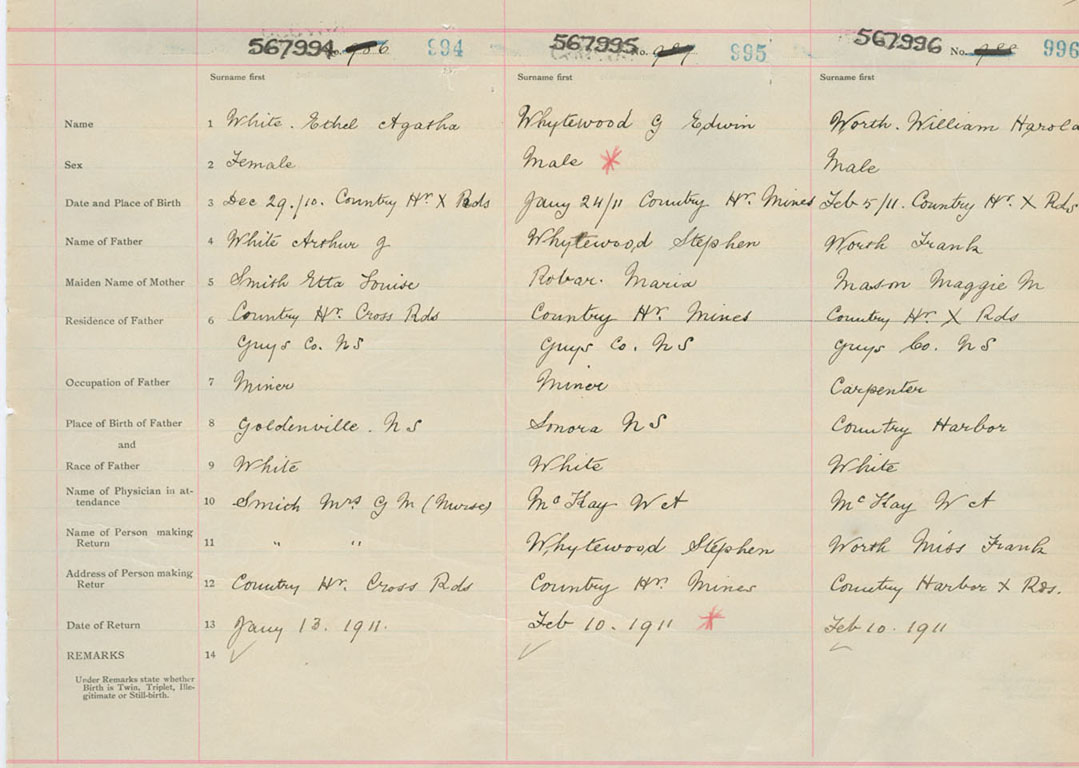 567994 No. 986 994 567995 No. 987 995 567996 No. 988 996
Surname first Surname first Surname first
Name 1 White. Ethel Agatha Whytewood G Edwin Worth. William Harold
Sex 2 Female Male Male
Date and Place of Birth 3 Dec 29./10. Country Hr X Rds Jany 24/11 Country Hr. Mines Feb 5/11. Country Hr. X Rds
Name of Father 4 White Arthur G Whytewood Stephen Worth Frank
Maiden Name of Mother 5 Smith Etta Louise Robar. Maria Mason Maggie M
Residence of Father 6 Country Hr. Cross Rds Country Hr Mines Country Hr X Rds
Guys Co. NS Guys Co. NS Guys Co. NS
Occupation of Father 7 Miner Miner Carpenter
Place of Birth of Father 8 Goldenville. NS Sonora NS Country Harbor
and
Race of Father 9 White White White
Name of Physician in at-
tendance 10 Smith Mrs G M (Nurse) McKay W A McKay W A
Name of Person making
Return 11 " " Whytewood Stephen Worth Miss Frank
Address of Person making
Retur 12 Country Hr. Cross Rds Country Hr. Mines Country Harbor X Rds.
Date of Return 13 Jany 13. 1911. Feb 10. 1911 Feb 10. 1911
REMARKS 14
Under Remarks state whether
Birth is Twin, Triplet, Ille-
gitimate or Still-birth.